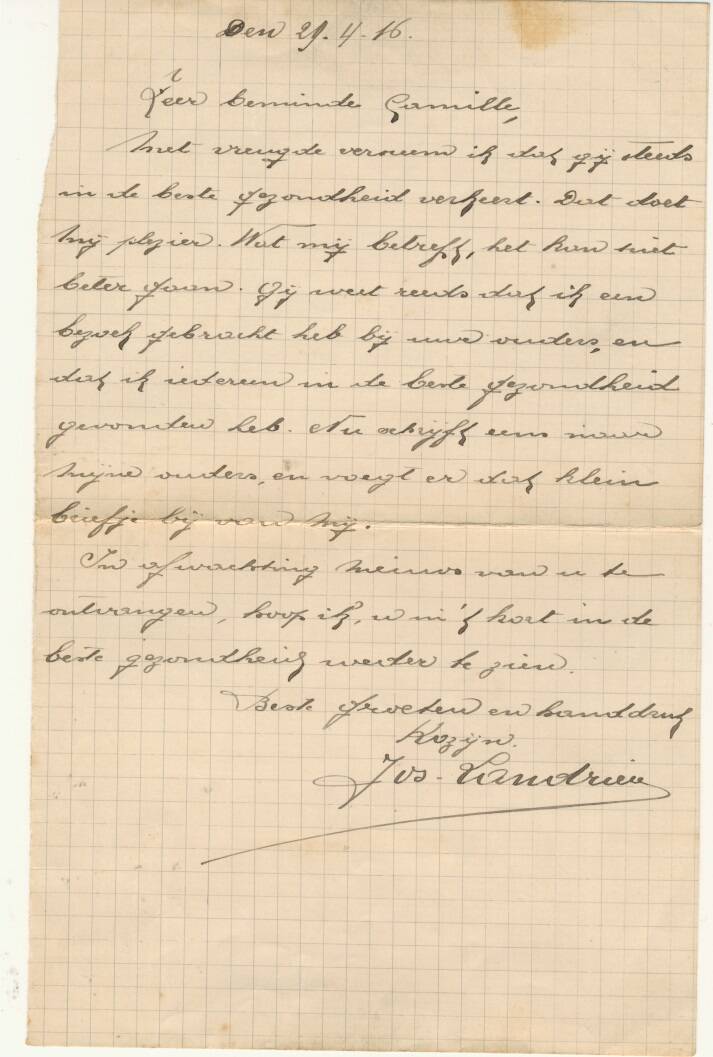 Den 29.4-16.
Zeer beminde Camille,
Met vreugde verneem ik dat gij steeds
in de beste gezondheid verkeert. Dat doet
mij plezier. Wat mij betreft, het kan niet
beter gaan. Gij weet reeds dat ik een
bezoek gebracht heb bij uwe ouders, en
dat ik iedereen in de beste gezondheid
gevonden heb. Nu schrijft eens naar
mijne ouders, en voegt er dat klein
briefje bij van mij.
In afwachting nieuws van u te
ontvangen, hoop ik, u in 't kort in de
beste gezondheid weder te zien.
Beste groeten en handdruk
Kozijn.
Jos. Landrieu